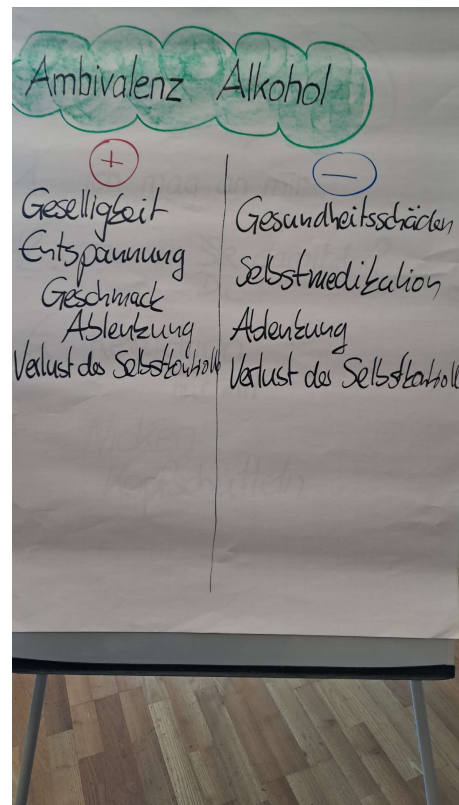 Ambivalenz Alkohol
+
Geselligkeit
Entspannung
Geschmack
Ablenkung
Verlust der Selbstkontrolle
−
Gesundheitsschäden
Selbstmedikation
Ablenkung
Verlust der Selbstkontrolle